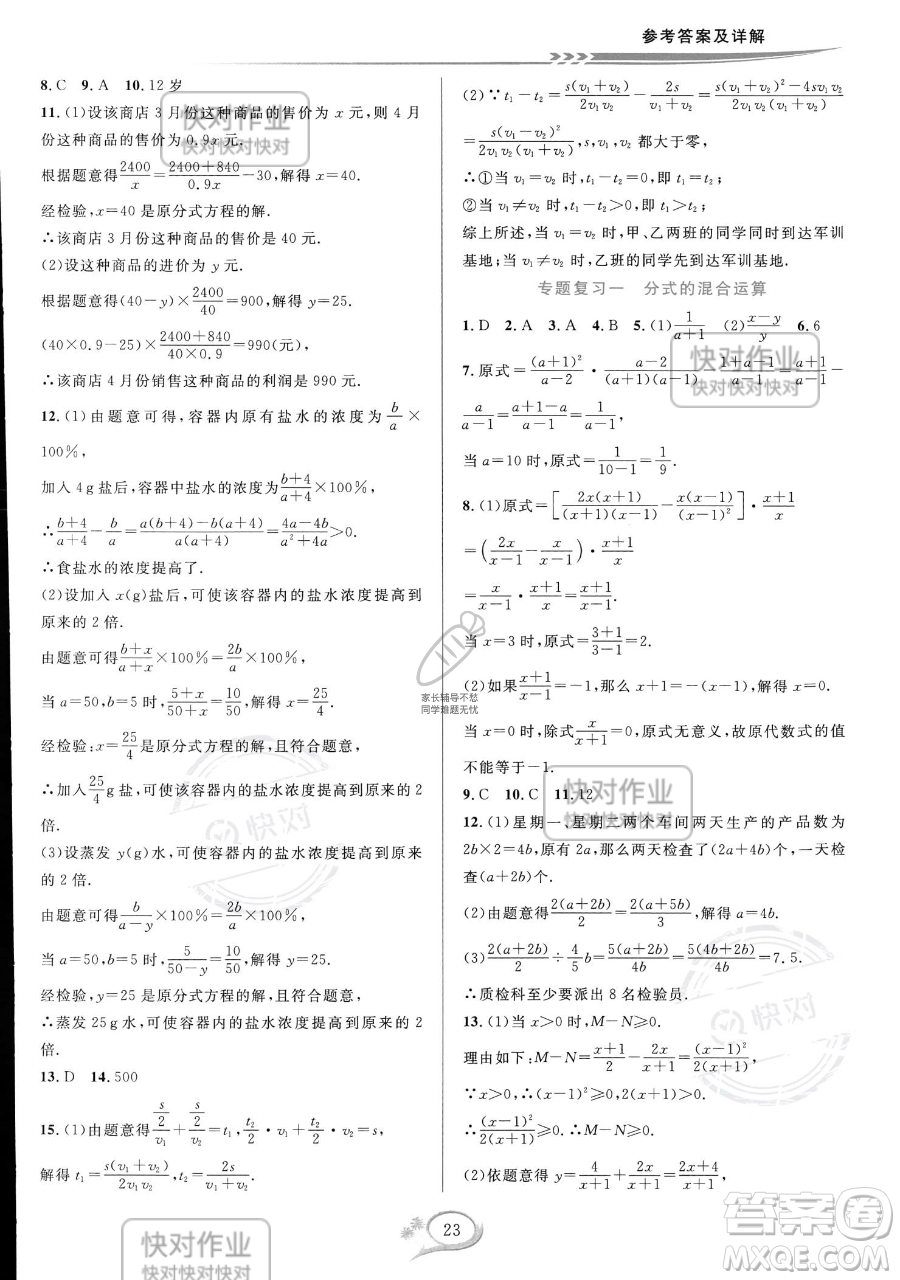 参考答案及详解
8.C 9.A 10.12 岁
11.(1)设该商店 3 月份这种商品的售价为 x 元,则 4 月
份这种商品的售价为 0.9x 元.
根据题意得 2400/x=(2400+840)/0.9x-30,解得 x=40.
经检验,x=40 是原分式方程的解.
∴该商店 3 月份这种商品的售价是 40 元.
(2)设这种商品的进价为 y 元.
根据题意得(40-y)×2400/40=900,解得 y=25.
(40×0.9-25)×(2400+840)/(40×0.9)=990(元),
∴该商店 4 月份销售这种商品的利润是 990 元.
12.(1)由题意可得,容器内原有盐水的浓度为 b/a×
100%,
加入 4 g 盐后,容器中盐水的浓度为 (b+4)/(a+4)×100%,
∴(b+4)/(a+4)-b/a=(a(b+4)-b(a+4))/(a(a+4))=(4a-4b)/(a²+4a)>0.
∴食盐水的浓度提高了.
(2)设加入 x(g)盐后,可使该容器内的盐水浓度提高到
原来的 2 倍.
由题意可得 (b+x)/(a+x)×100%=2b/a×100%,
当 a=50,b=5 时,(5+x)/(50+x)=10/50,解得 x=25/4.
经检验:x=25/4 是原分式方程的解,且符合题意,
∴加入 25/4 g 盐,可使该容器内的盐水浓度提高到原来的
2 倍.
(3)设蒸发 y(g)水,可使容器内的盐水浓度提高到原来
的 2 倍.
由题意可得 b/(a-y)×100%=2b/a×100%,
当 a=50,b=5 时,5/(50-y)=10/50,解得 y=25.
经检验,y=25 是原分式方程的解,且符合题意,
∴蒸发 25 g 水,可使容器内的盐水浓度提高到原来的 2
倍.
13.D 14.500
15.(1)由题意得 (s/2)/v₁+(s/2)/v₂=t₁,t₂/2·v₁+t₂/2·v₂=s,
解得 t₁=s(v₁+v₂)/2v₁v₂,t₂=2s/(v₁+v₂).
(2)∵t₁-t₂=s(v₁+v₂)/2v₁v₂-2s/(v₁+v₂)=(s(v₁+v₂)²-4sv₁v₂)/(2v₁v₂(v₁+v₂))
=s(v₁-v₂)²/(2v₁v₂(v₁+v₂)),s,v₁,v₂ 都大于零,
∴①当 v₁=v₂ 时,t₁-t₂=0,即 t₁=t₂;
②当 v₁≠v₂ 时,t₁-t₂>0,即 t₁>t₂;
综上所述,当 v₁=v₂ 时,甲、乙两班的同学同时到达军训
基地;当 v₁≠v₂ 时,乙班的同学先到达军训基地.
专题复习一 分式的混合运算
1.D 2.A 3.A 4.B 5.(1)1/(a+1) (2)(x-y)/y 6.6
7.原式=(a+1)²/(a-2)·(a-2)/((a+1)(a-1))-a/(a-1)=(a+1)/(a-1)-
a/(a-1)=(a+1-a)/(a-1)=1/(a-1),
当 a=10 时,原式=1/(10-1)=1/9.
8.(1)原式=[2x(x+1)/((x+1)(x-1))-x(x-1)/(x-1)²]·(x+1)/x
=(2x/(x-1)-x/(x-1))·(x+1)/x
=x/(x-1)·(x+1)/x=(x+1)/(x-1),
当 x=3 时,原式=(3+1)/(3-1)=2.
(2)如果(x+1)/(x-1)=-1,那么 x+1=-x+1,解得 x=0.
当 x=0 时,除式 x/(x+1)=0,无意义,故原代数式的值
不能等于-1.
9.C 10.C 11.12
12.(1)星期一、星期二两个车间两天生产的产品数为
2b×2=4b,原有 2a,那么两天检查了(2a+4b)个,一天
检查(a+2b)个.
(2)由题意得 2(a+2b)/2=2(a+5b)/3,解得 a=4b.
(3)2(a+2b)/2÷4/5 b=5(a+2b)/4b=5(4b+2b)/4b=7.5.
∴质检科至少要派出 8 名检验员.
13.(1)当 x>0 时,M-N≥0.
理由如下:M-N=(x+1)/2-2x/(x+1)=(x-1)²/2(x+1).
∵x>0,∴(x-1)²≥0,2(x+1)>0,
∴(x-1)²/2(x+1)≥0.∴M-N≥0.
(2)依题意得 y=4/(x+1)+2x/(x+1)=(2x+4)/(x+1),
23
快对作业
快对快对快对
快对作业
快对快对快对
快对作业
快对快对快对
快对作业
快对快对快对
快对
快对
家长辅导不愁
同学难题无忧
答案圈
MXQE.COM